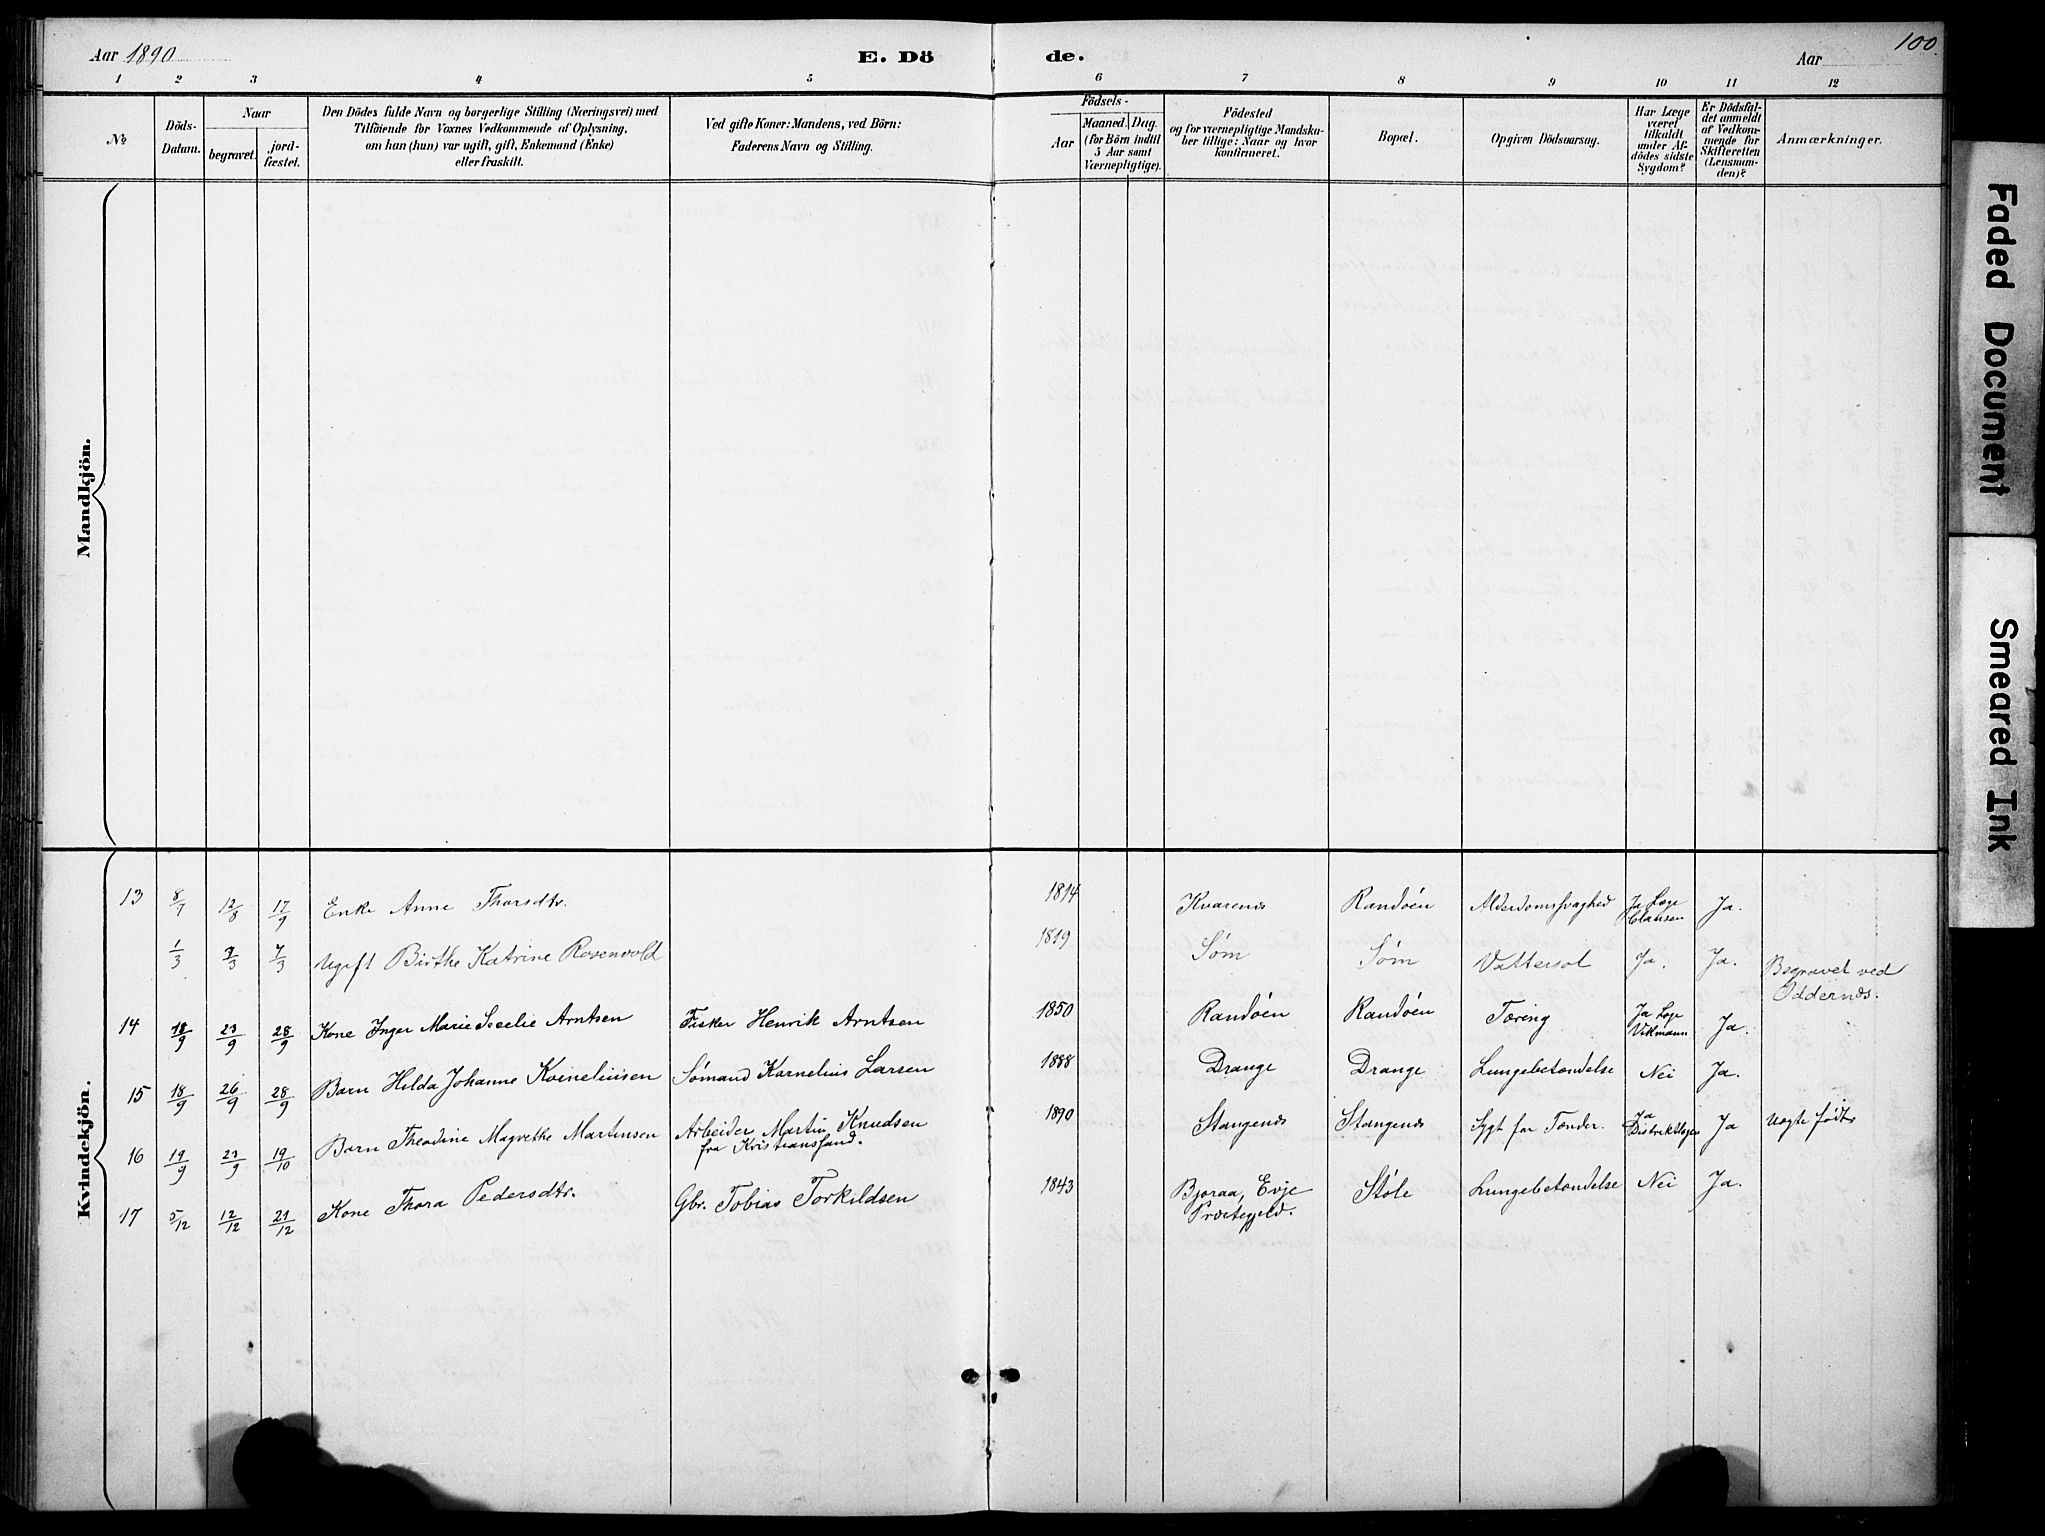 Aar 1890
E. Dö
de.
Aar
100.
1 2 3 4 5 6 7 8 9 10 11 12
No
Döds-
Datum.
Naar
begravet.
jord-
fæstet.
Den Dödes fulde Navn og borgerlige Stilling (Næringsvei) med
Tilföiende for Voxnes Vedkommende af Oplysning,
om han (hun) var ugift, gift, Enkemand (Enke)
eller fraskilt.
Ved gifte Koner: Mandens, ved Börn:
Faderens Navn og Stilling.
Födsels-
Aar
Maaned. Dag.
(for Börn indtil
5 Aar samt
Værnepligtige).
Födested
og for værnepligtige Mandska-
ber tillige: Naar og hvor
konfirmeret.
Bopæl.
Opgiven Dödsaarsag.
Har Læge
været
tilkaldt
under Af-
dödes sidste
Sygdom?
Er Dödsfal-
det anmeldt
af Vedkom-
mende for
Skifteretten
(Lensman-
den)?
Anmærkninger.
Mandkjön.
Kvindekjön.
13 8/7 12/8 17/9 Enke Anne Thorsdtr. 1814 Kvarenes Randøen Alderdomssvaghed Ja Læge Clausen Ja.
1/3 7/3 7/3 Ugift Birthe Katrine Rosenvold 1819 Søm Søm Vattersot Ja. Ja. Begravet ved
Oddernæs.
14 18/9 23/9 28/9 Kone Inger Marie Secelie Arntsen Fisker Henrik Arntsen 1850 Randøen Randøen Tæring Ja Læge Ja.
15 18/9 26/9 28/9 Barn Hilda Johanne Kornelinsen Sømand Kornelius Larsen 1888 Drange Drange Lungebetændelse Nei Ja.
16 19/9 23/9 19/10 Barn Theodine Magrethe Martinsen Arbeider Martin Knudsen
fra Kristiansand. 1890 Stangenes Stangenes Sygt for Tænder. Ja
Distriktslæge Ja Uægte født
17 5/12 12/12 21/12 Kone Thora Pedersdtr. Gbr. Tobias Torkildsen 1843 Bjoraa, Evje
Præstegjeld. Støle Lungebetændelse Nei Ja.
Faded Document
Smeared Ink